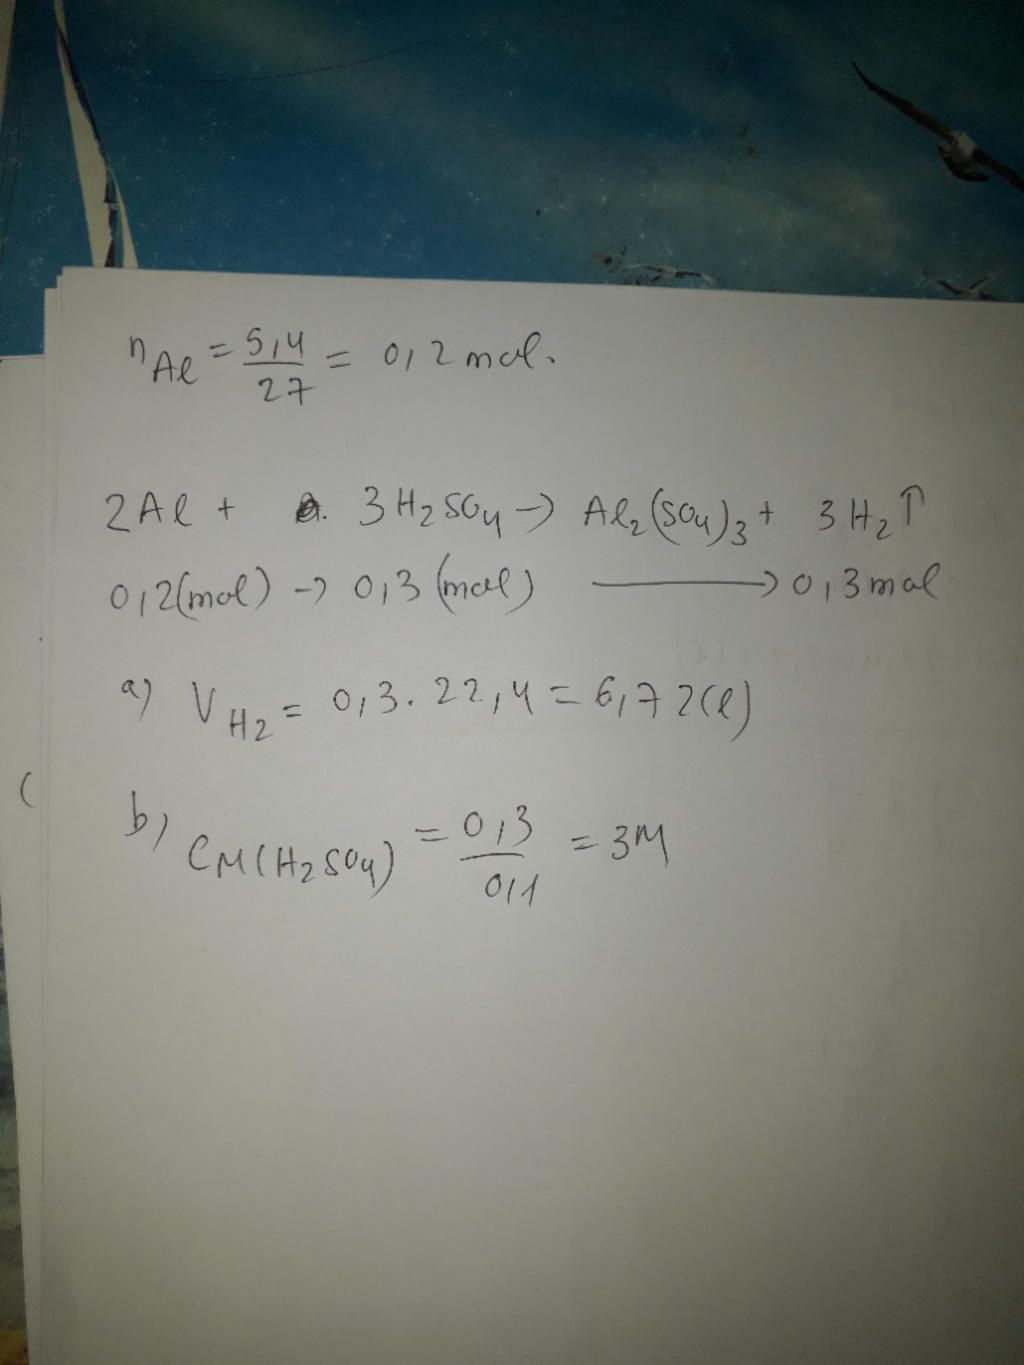 nAl = 5,4/27 = 0,2 mol.
2Al + 3H2SO4 -> Al2(SO4)3 + 3H2↑
0,2(mol) -> 0,3 (mol) -> 0,3 mol
a) VH2 = 0,3 . 22,4 = 6,72(l)
b) CM(H2SO4) = 0,3/0,1 = 3M